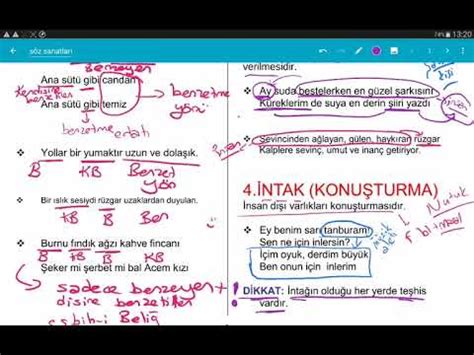 13:20
söz sanatları
benzeyen
Ana sütü gibi candan
Kendisine benzetilen
benzetme yönü
Ana sütü gibi temiz
benzetme edatı
Yollar bir yumaktır uzun ve dolaşık.
B KB Benzet yön
Bir ıslık sesiydi rüzgar uzaklardan duyulan.
KB B Ben
Burnu fındık ağzı kahve fincanı
B KB B KB
Şeker mi şerbet mi bal Acem kızı
sadece benzeyen +
benzetilen
Beliğ
verilmesidir.
Ay suda bestelerken en güzel şarkısını
Küreklerim de suya en derin şiiri yazdı
insan
Sevincinden ağlayan, gülen, haykıran rüzgar
Kalplere sevinç, umut ve inanç getiriyor.
4.İNTAK (KONUŞTURMA)
İnsan dışı varlıkları konuşturmasıdır.
Nutuk
Ey benim sarı tanburam
Sen ne için inlersin?
İçim oyuk, derdim büyük
Ben onun için inlerim
DİKKAT: İntağın olduğu her yerde teşhis
vardır.